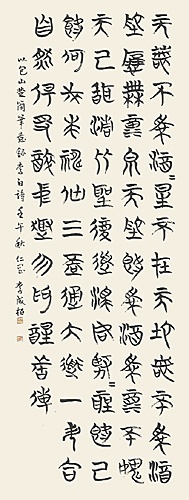 天若不愛酒=星不在天地若不愛酒
地應無酒泉天地既愛酒愛酒不愧
天已聞清比聖復道濁如賢=聖既已
飲何必求神仙三杯通大道一斗合
自然但得酒中趣勿為醒者傳
以包山楚簡筆意錄李白詩 壬午秋